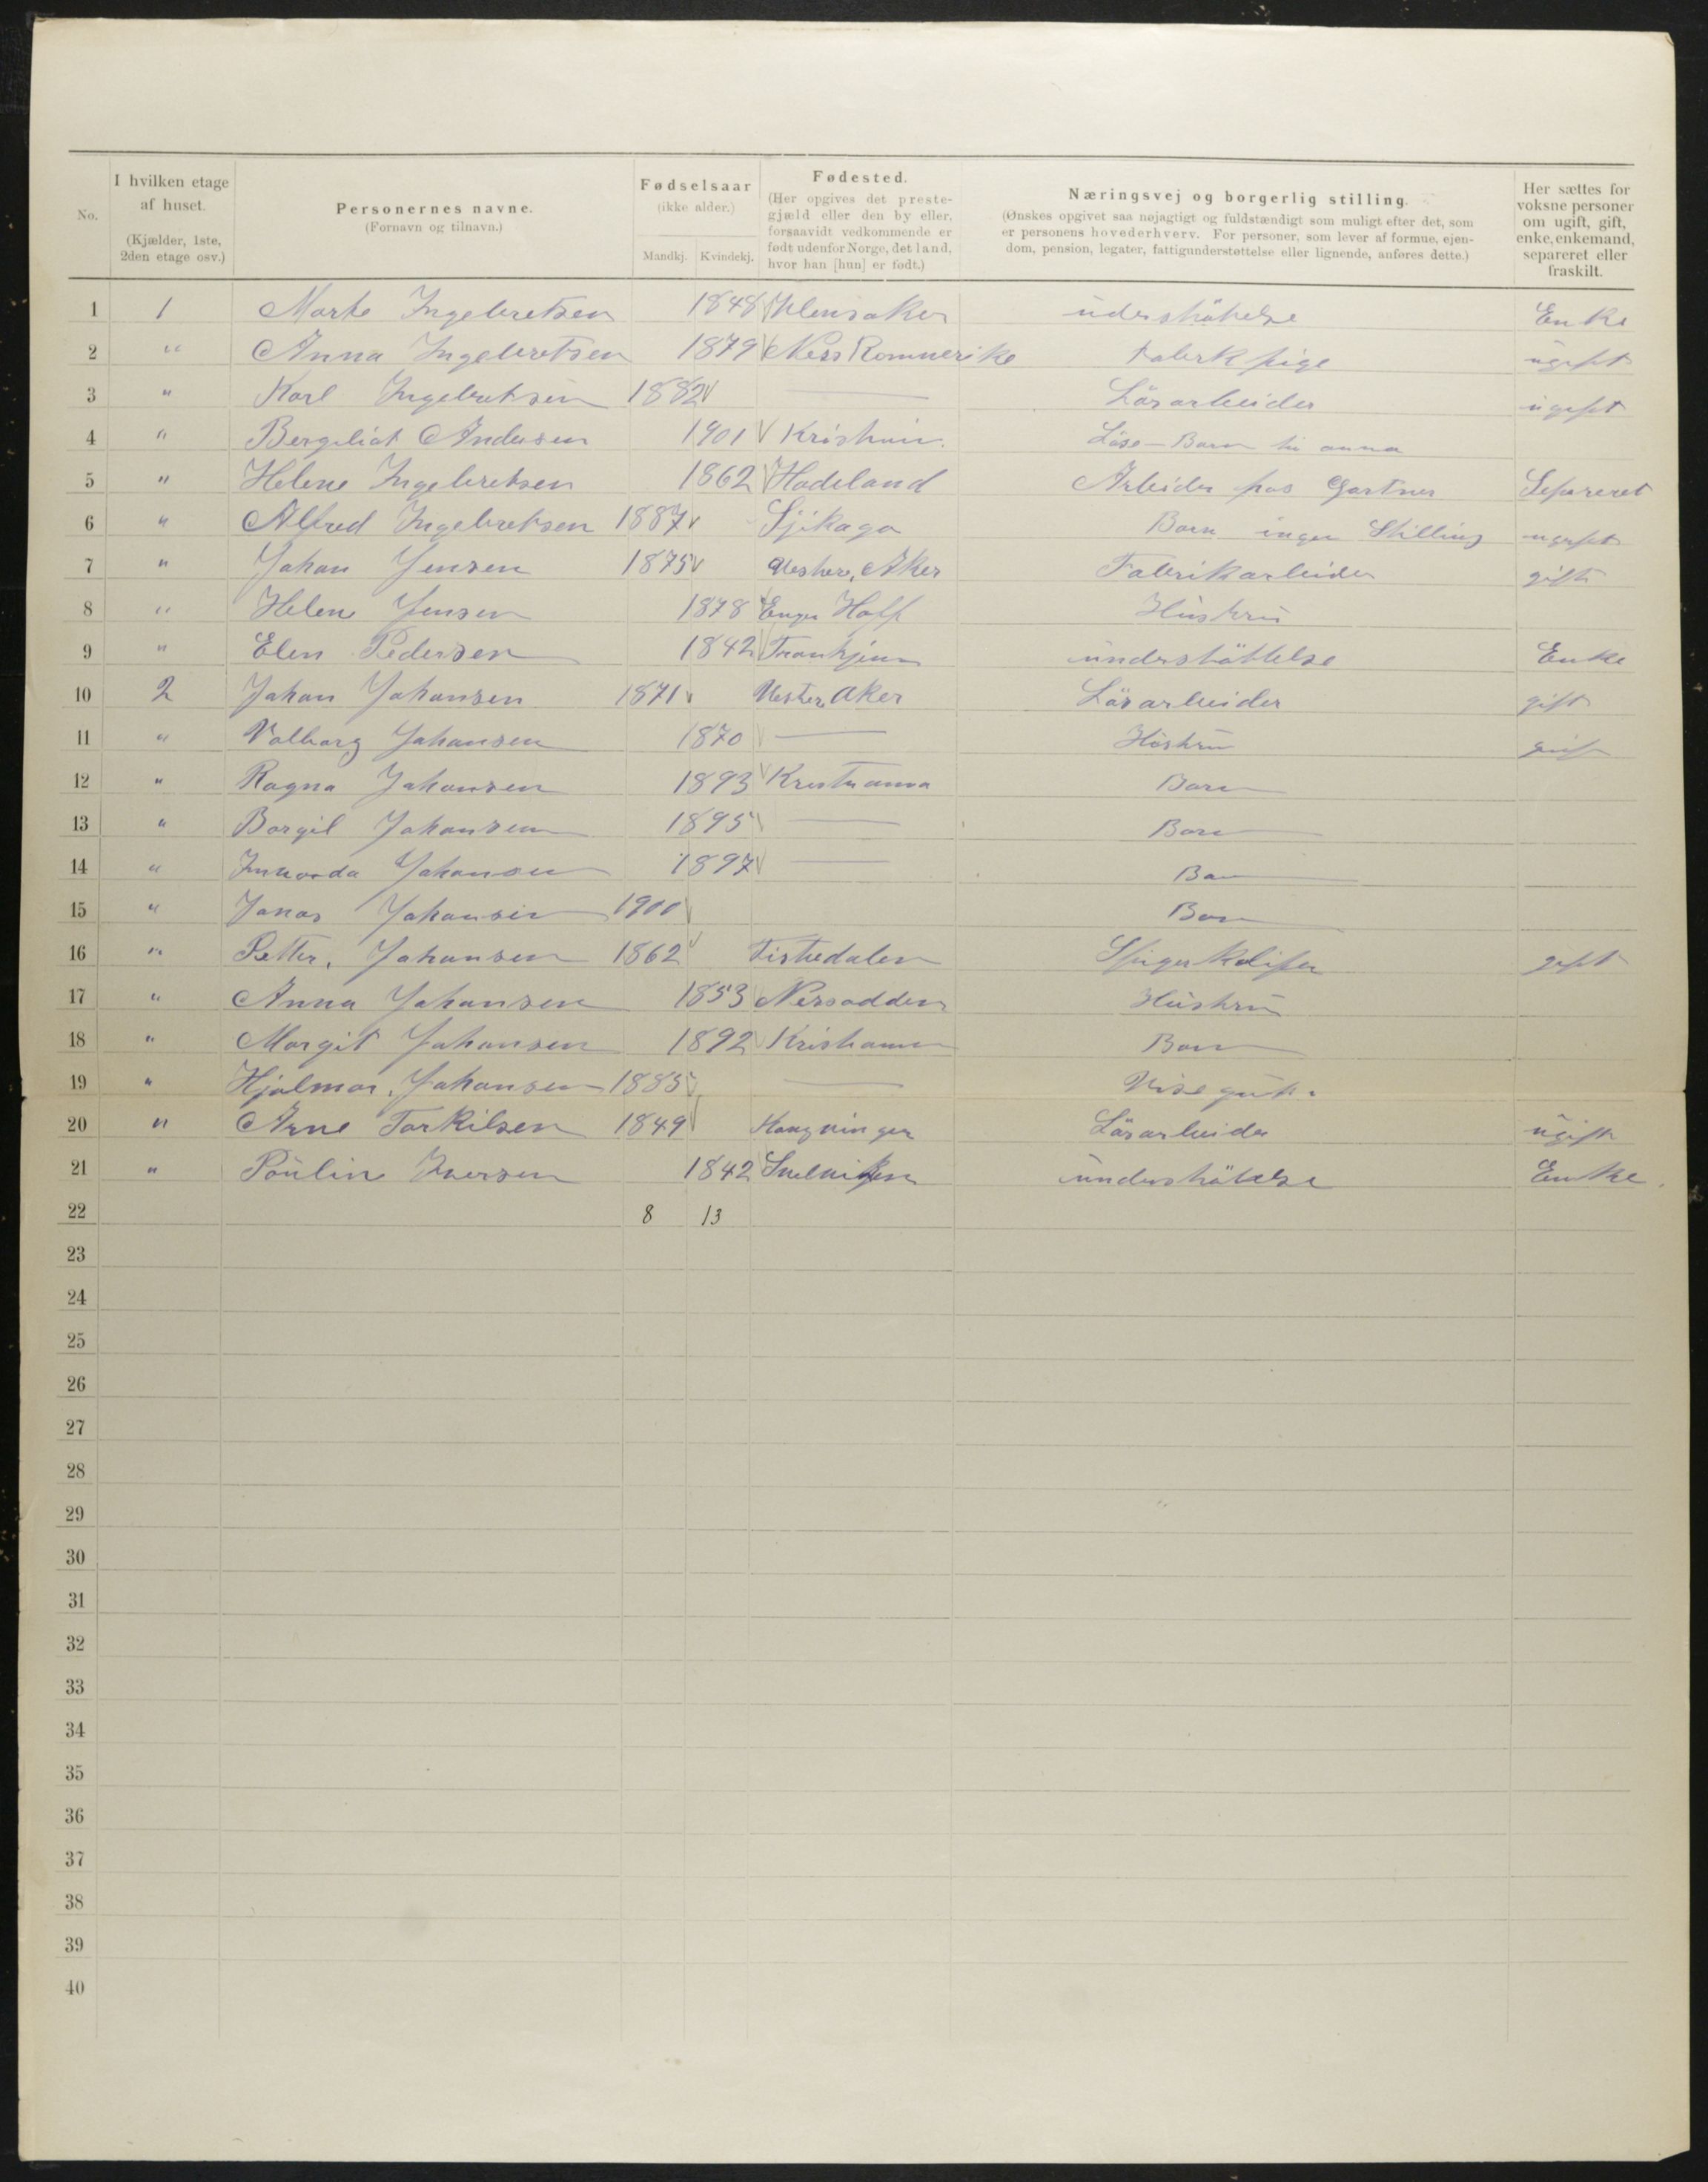 No.
I hvilken etage
af huset.
(Kjælder, 1ste,
2den etage osv.)
Personernes navne.
(Fornavn og tilnavn.)
Fødselsaar
(ikke alder.)
Mandkj. Kvindekj.
Fødested.
(Her opgives det preste-
gjæld eller den by eller,
forsaavidt vedkommende er
født udenfor Norge, det land,
hvor han [hun] er født.)
Næringsvej og borgerlig stilling.
(Ønskes opgivet saa nøjagtigt og fuldstændigt som muligt efter det, som
er personens hovederhverv. For personer, som lever af formue, ejen-
dom, pension, legater, fattigunderstøttelse eller lignende, anføres dette.)
Her sættes for
voksne personer
om ugift, gift,
enke, enkemand,
separeret eller
fraskilt.
1 1 Marte Ingebretsen 1848 Ulensaker understötelse Enke
2 " Anna Ingebretsen 1879 Ness Romnerike Fabrk pige ugift
3 " Karl Ingebretsen 1882 — Lösarbeider ugift
4 " Andersen 1901 Löse-Barn til anna
5 " Helene Ingebretsen 1862 Hadeland Arbeider hos Gartner Separeret
6 " Alfred Ingebretsen 1887 Sjikago Barn ingen Stilling ugift
7 " Johan Jensen 1875 Vestre, Aker Fabrikarbeider gift
8 " Helene Jensen 1878 Hoff Hustru
9 " Elen Pedersen 1842 Tronhjem understöttelse Enke
10 2 Johan Johansen 1871 Vestre Aker Lösarbeider gift
11 " Valborg Johansen 1870 — Hustru gift
12 " Ragna Johansen 1893 Kristianna Barn
13 " Borgil Johansen 1895 — Barn
14 " Johansen 1897 — Barn
15 " Jonas Johansen 1900 Barn
16 " Petter. Johansen 1862 Tistedalen gift
17 " Anna Johansen 1853 Nersodden Hustru
18 " Margit Johansen 1892 Kristiania Barn
19 " Hjalmar. Johansen 1885 — Vise gut.
20 " Arne Torkilsen 1849 Kongvinger Lösarbeider ugift
21 " Paulin Iversen 1842 understötelse Enke.
22 8 13
23
24
25
26
27
28
29
30
31
32
33
34
35
36
37
38
39
40